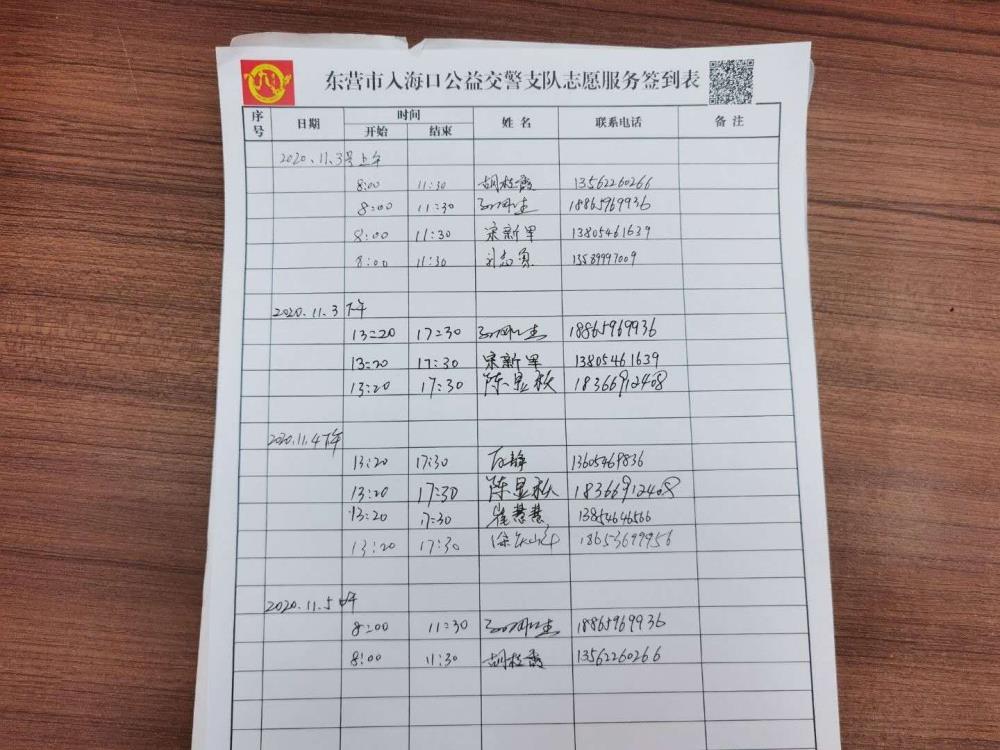 东营市入海口公益交警支队志愿服务签到表
序号 日期 时间 姓名 联系电话 备注
开始 结束
2020.11.3号上午
8:00 11:30 胡桂霞 13562260266
8:00 11:30 18865969936
8:00 11:30 宋新军 13805461639
8:00 11:30 13589997009
2020.11.3 下午
13:20 17:30 18865969936
13:20 17:30 宋新军 13805461639
13:20 17:30 陈显秋 18366912408
2020.11.4下午
13:20 17:30 石静 13605469836
13:20 17:30 陈显秋 18366912408
13:20 17:30 崔慧慧 13854646566
13:20 17:30 18653699956
2020.11.5上午
8:00 11:30 18865969936
8:00 11:30 胡桂霞 13562260266